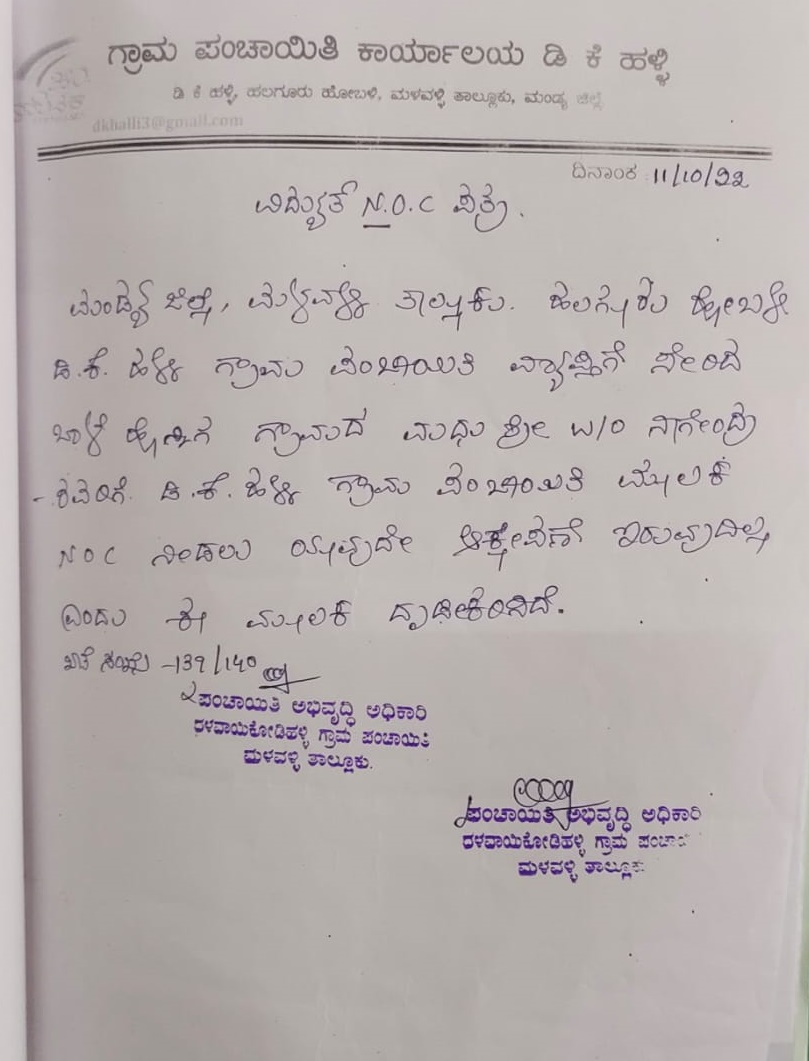 ಗ್ರಾಮ ಪಂಚಾಯಿತಿ ಕಾರ್ಯಾಲಯ ಡಿ ಕೆ ಹಳ್ಳಿ
ಡಿ ಕೆ ಹಳ್ಳಿ, ಹಲಗೂರು ಹೋಬಳಿ, ಮಳವಳ್ಳಿ ತಾಲ್ಲೂಕು, ಮಂಡ್ಯ ಜಿಲ್ಲೆ
dkhalli3@gmail.com
ದಿನಾಂಕ : 11/10/22
ವಿದ್ಯುತ್ N.O.C ಪತ್ರ.
ಮಂಡ್ಯ ಜಿಲ್ಲೆ, ಮಳವಳ್ಳಿ ತಾಲ್ಲೂಕು. ಹಲಗೂರು ಹೋಬಳಿ
ಡಿ.ಕೆ. ಹಳ್ಳಿ ಗ್ರಾಮ ಪಂಚಾಯಿತಿ ವ್ಯಾಪ್ತಿಗೆ ಸೇರಿದ
ಗ್ರಾಮದ ಮಧುಶ್ರೀ W/O ನಾಗೇಂದ್ರ
- ರವರಿಗೆ. ಡಿ.ಕೆ. ಹಳ್ಳಿ ಗ್ರಾಮ ಪಂಚಾಯಿತಿ ಮೂಲಕ
NOC ನೀಡಲು ಯಾವುದೇ ಆಕ್ಷೇಪಣೆ ಇರುವುದಿಲ್ಲ
ಎಂದು ಈ ಮೂಲಕ ದೃಢೀಕರಿಸಿದೆ.
ಖಾತೆ ಸಂಖ್ಯೆ -139/140
ಪಂಚಾಯಿತಿ ಅಭಿವೃದ್ಧಿ ಅಧಿಕಾರಿ
ದಳವಾಯಿಕೋಡಿಹಳ್ಳಿ ಗ್ರಾಮ ಪಂಚಾಯಿತಿ
ಮಳವಳ್ಳಿ ತಾಲ್ಲೂಕು.
ಪಂಚಾಯಿತಿ ಅಭಿವೃದ್ಧಿ ಅಧಿಕಾರಿ
ದಳವಾಯಿಕೋಡಿಹಳ್ಳಿ ಗ್ರಾಮ ಪಂಚಾ
ಮಳವಳ್ಳಿ ತಾಲ್ಲೂಕು